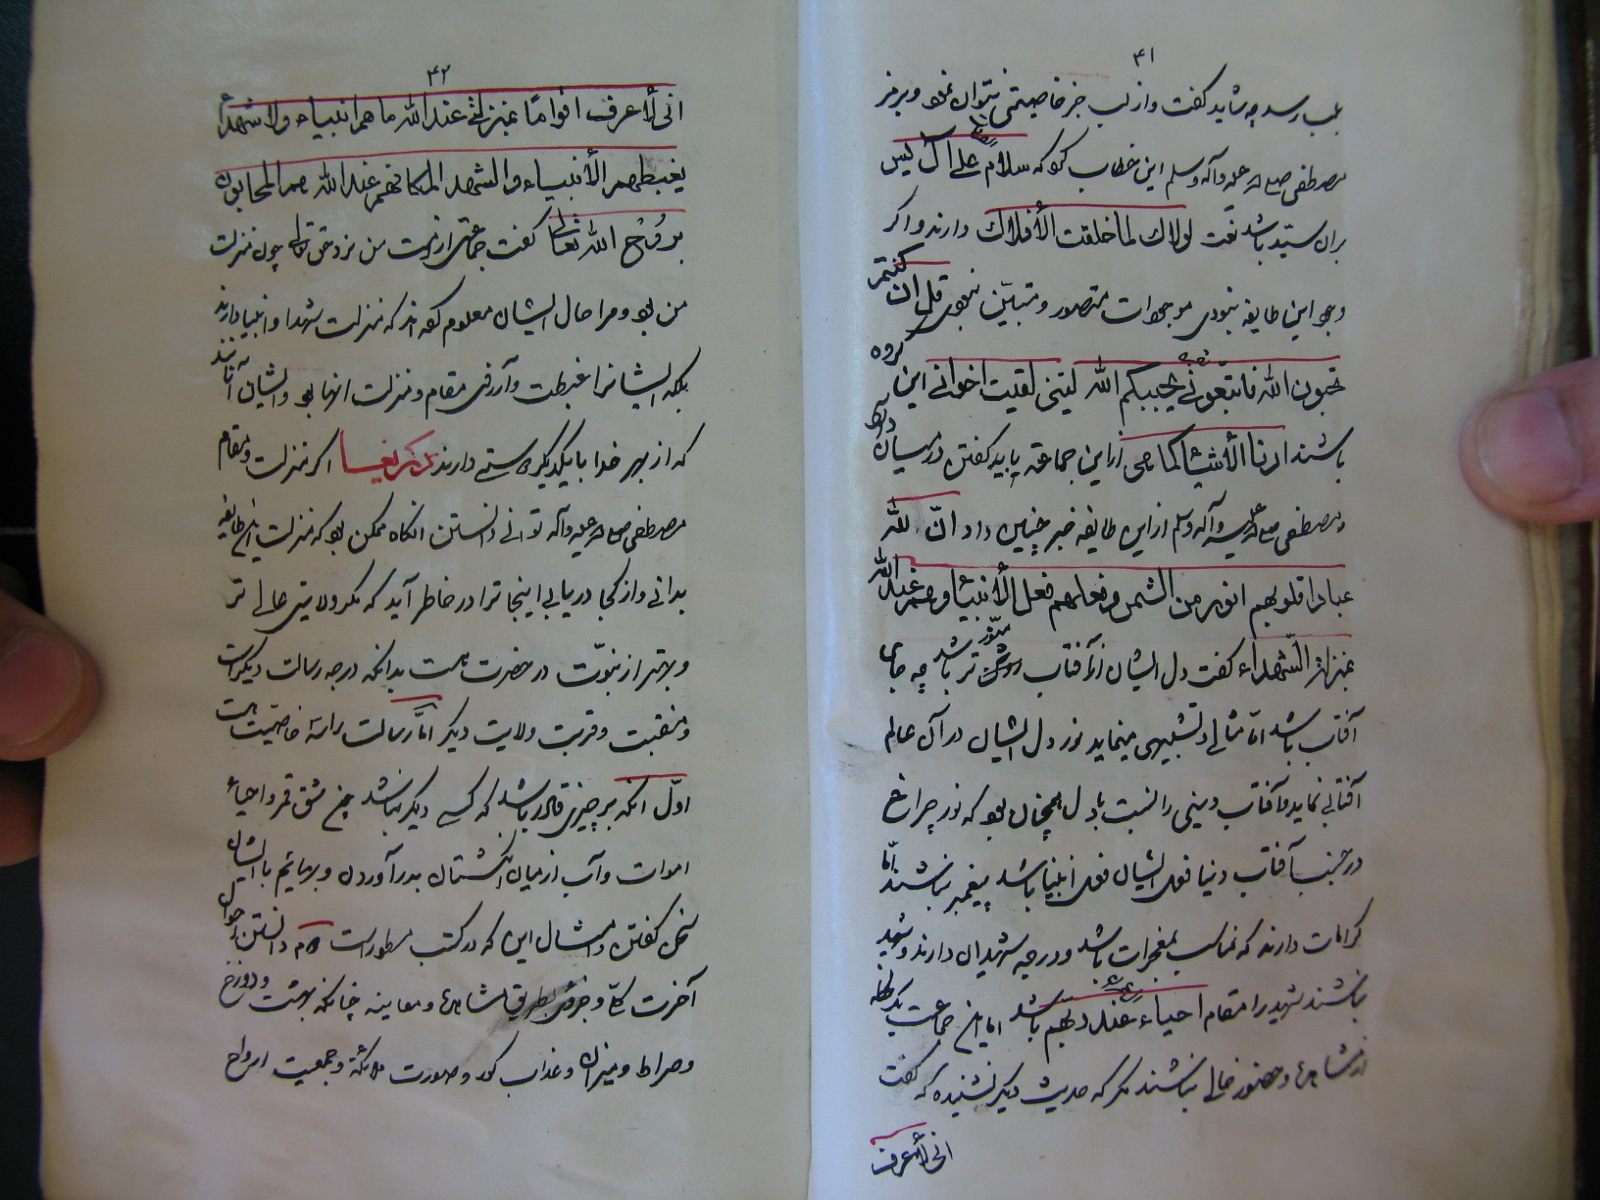 ۴۱
بلب رسد چه شاید گفت و از لب جز خاصیتی نتوان نمود و بر مز
مصطفی صلی الله علیه وآله وسلم این خطاب کو که سلام علی آل یس
بران سید باشد نعت لولاک لما خلقت الأفلاک دارند واکر
وجود این طایفه نبودی موجودات متصور و متبیّن نبودی قل ان کنتم
تحبون الله فاتبعونی یحببکم الله لیتنی لقیت اخوانی این گروه
باشند ارنا الأشیاء کما هی ازاین جماعة باید کفتن در میان
مصطفی صلی الله علیه وآله وسلم ازاین طایفه خبر چنین داد انّ لله
عبادا قلوبهم انور من الشمس وفعلهم فعل الأنبیاء وهم عند الله
بمنزلة الشهداء کفت دل ایشان از آفتاب روشن تر باشد چه جای منوّر
آفتاب باشد امّا مثالی و تشبیهی مینماید نور دل ایشان در آن عالم
آفتابی نماید و آفتاب دینی را نسبت با دل همچنان بود که نور چراغ
در جنب آفتاب دنیا فعل ایشان فعل انبیا باشد پیغمبر نباشند امّا
کرامات دارند که مناسب بمعجزات باشد و درجه شهیدان دارند و شهید
نباشند شهید را مقام احیاء عند ربهم باشد اما این جماعت یک لحظه
از مشاهده وحضور خالی نباشند مکر که حدیث دیکر نشنیده که کفت
انی لأعرف
۴۲
انی لأعرف اقواما بمنزلتی عند الله ما هم انبیاء ولا شهداء
یغبطهم الأنبیاء والشهداء لمکانهم عند الله هم المحابون
بروح الله تعالی کفت جماعتی از امت من نزد حق تعالی چون منزلت
من بود ومرا حال ایشان معلوم کرده اند که منزلت شهدا وانبیا دارند
بلکه ایشانرا غبطت وآرزوی مقام ومنزلت انها بود وایشان آنانند
که از بهر خدا با یکدیکر دوستی دارند اکر منزلت ومقام
مصطفی صلی الله علیه وآله توانی دانستن انکاه ممکن بود که منزلت این طایفه
بدانی واز کجا دریابی اینجا ترا در خاطر آید که مکر ولایتی عالی تر
وبهتر از نبوّت در حضرت هست بدانکه درجه رسالت دیکرست
ومنقبت وقربت ولایت دیکر امّا رسالت را سه خاصیّت هست
اوّل انکه بر چیزی قادر باشد که کسی دیکر نباشد چون شق قمر واحیاء
اموات وآب از میان انکشتان بدر آوردن وبهائم با ایشان
سخن کفتن وامثال این که در کتب مسطور است دوم دانستن احوال
آخرت کلّی وجزوی بطریق مشاهده ومعاینه چنانکه بهشت ودوزخ
وصراط ومیزان وعذاب کور وصورت ملائکة وجمعیت ارواح